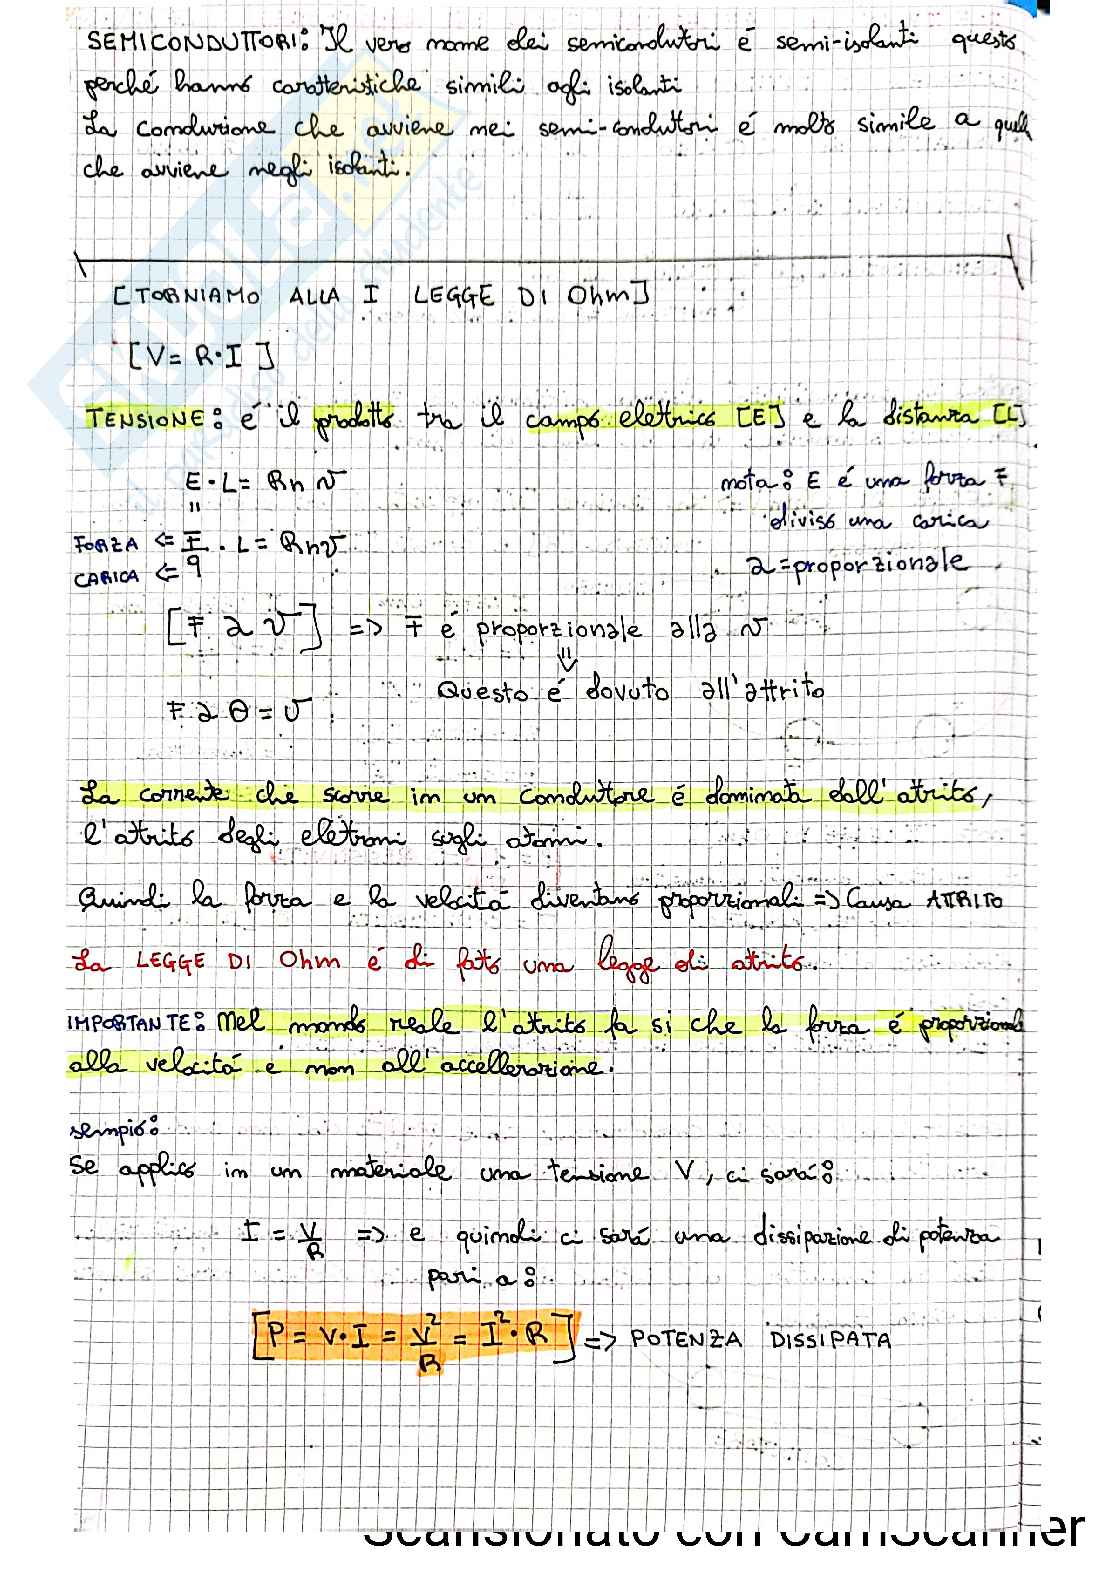 SEMICONDUTTORI: Il vero nome dei semicondutori é semi-isolanti questo
perché hanno caratteristiche simili agli isolanti
La conduzione che avviene nei semi-conduttori é molto simile a quella
che avviene negli isolanti.
[TORNIAMO ALLA I LEGGE DI Ohm]
[V= R·I]
TENSIONE: é il prodotto tra il campo elettrico [E] e la distanza [L]
E·L= Rn v
nota: E é una forza F
=
diviso una carica
FORZA <= F/q · L= Rnv
CARICA <=
2=proporzionale
[F 2 v] => F é proporzionale alla v
Questo é dovuto all'attrito
F 2 θ = v
La corrente che scorre in un conduttore é dominata dall'atrito,
l'atrito degli elettroni sugli atomi.
Quindi la forza e la velocitá diventano proporzionali => Causa ATTRITO
La LEGGE DI Ohm é di fato una legge di atrito.
IMPORTANTE: Nel mondo reale l'atrito fa si che la forza é proporzionale
alla velocitá e non all'accellerazione.
sempio:
Se applico in un materiale una tensione V, ci sará:
I = V/R => e quindi ci sará una dissipazione di potenza
pari a:
[P = V·I = V²/R = I²·R] => POTENZA DISSIPATA
Scansionato con CamScanner